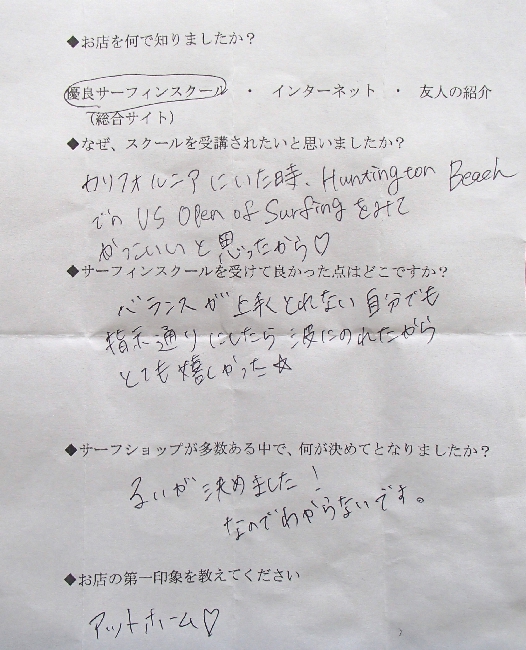 ◆お店を何で知りましたか？
優良サーフィンスクール ・ インターネット ・ 友人の紹介
（総合サイト）
◆なぜ、スクールを受講されたいと思いましたか？
カリフォルニアにいた時、Huntington Beach
での US Open of Surfing をみて
かっこいいと思ったから♡
◆サーフィンスクールを受けて良かった点はどこですか？
バランスが上手くとれない自分でも
指示通りにしたら波にのれたから
とても嬉しかった☆
◆サーフショップが多数ある中で、何が決めてとなりましたか？
るいが決めました！
なのでわからないです。
◆お店の第一印象を教えてください
アットホーム♡